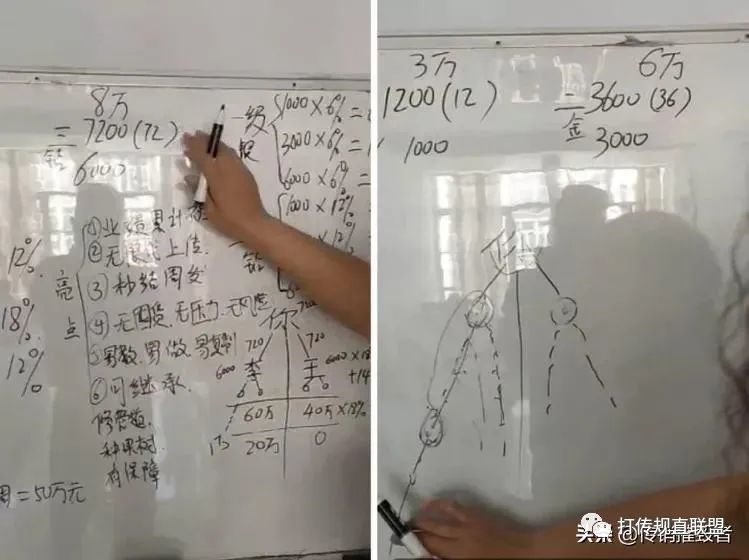 8万
三=7200(72)
钻
6000
一级
银
1000×6%=
3000×6%=
6000×6%=
1000×12%
×12%
12%
18%
12%
亮点
①业绩累计
②无限代上位
③秒结周发
④无囤货.无压力.无风险
⑤易教.易做.易复制
⑥可继承
修管道
种果树
有保障
你
720
720
720
6000
李
王
6000×18%
+14
60万
40万×18%
20万
0
周=50万元
3万
1200(12)
1000
6万
二=3600(36)
金
3000
头条 @传销摧毁者
打传规直联盟